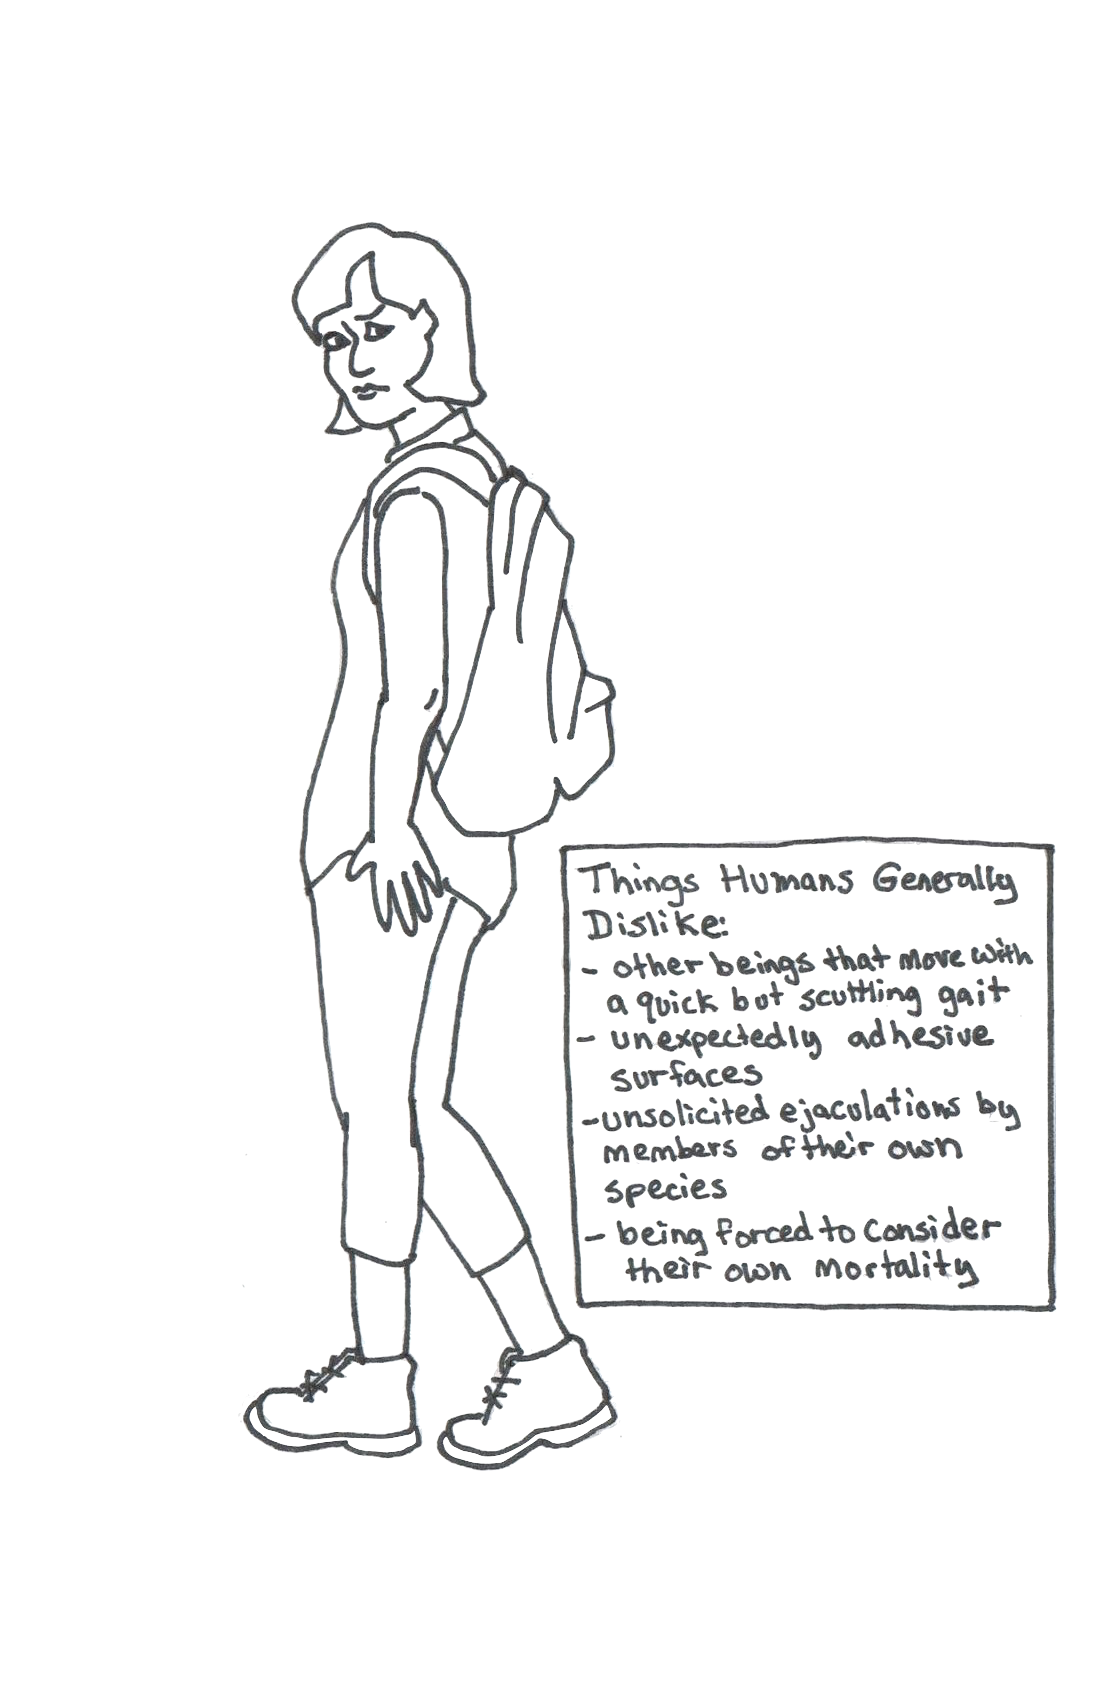 Things Humans Generally
Dislike:
- other beings that move with
a quick but scuttling gait
- unexpectedly adhesive
surfaces
-unsolicited ejaculations by
members of their own
species
- being forced to consider
their own mortality